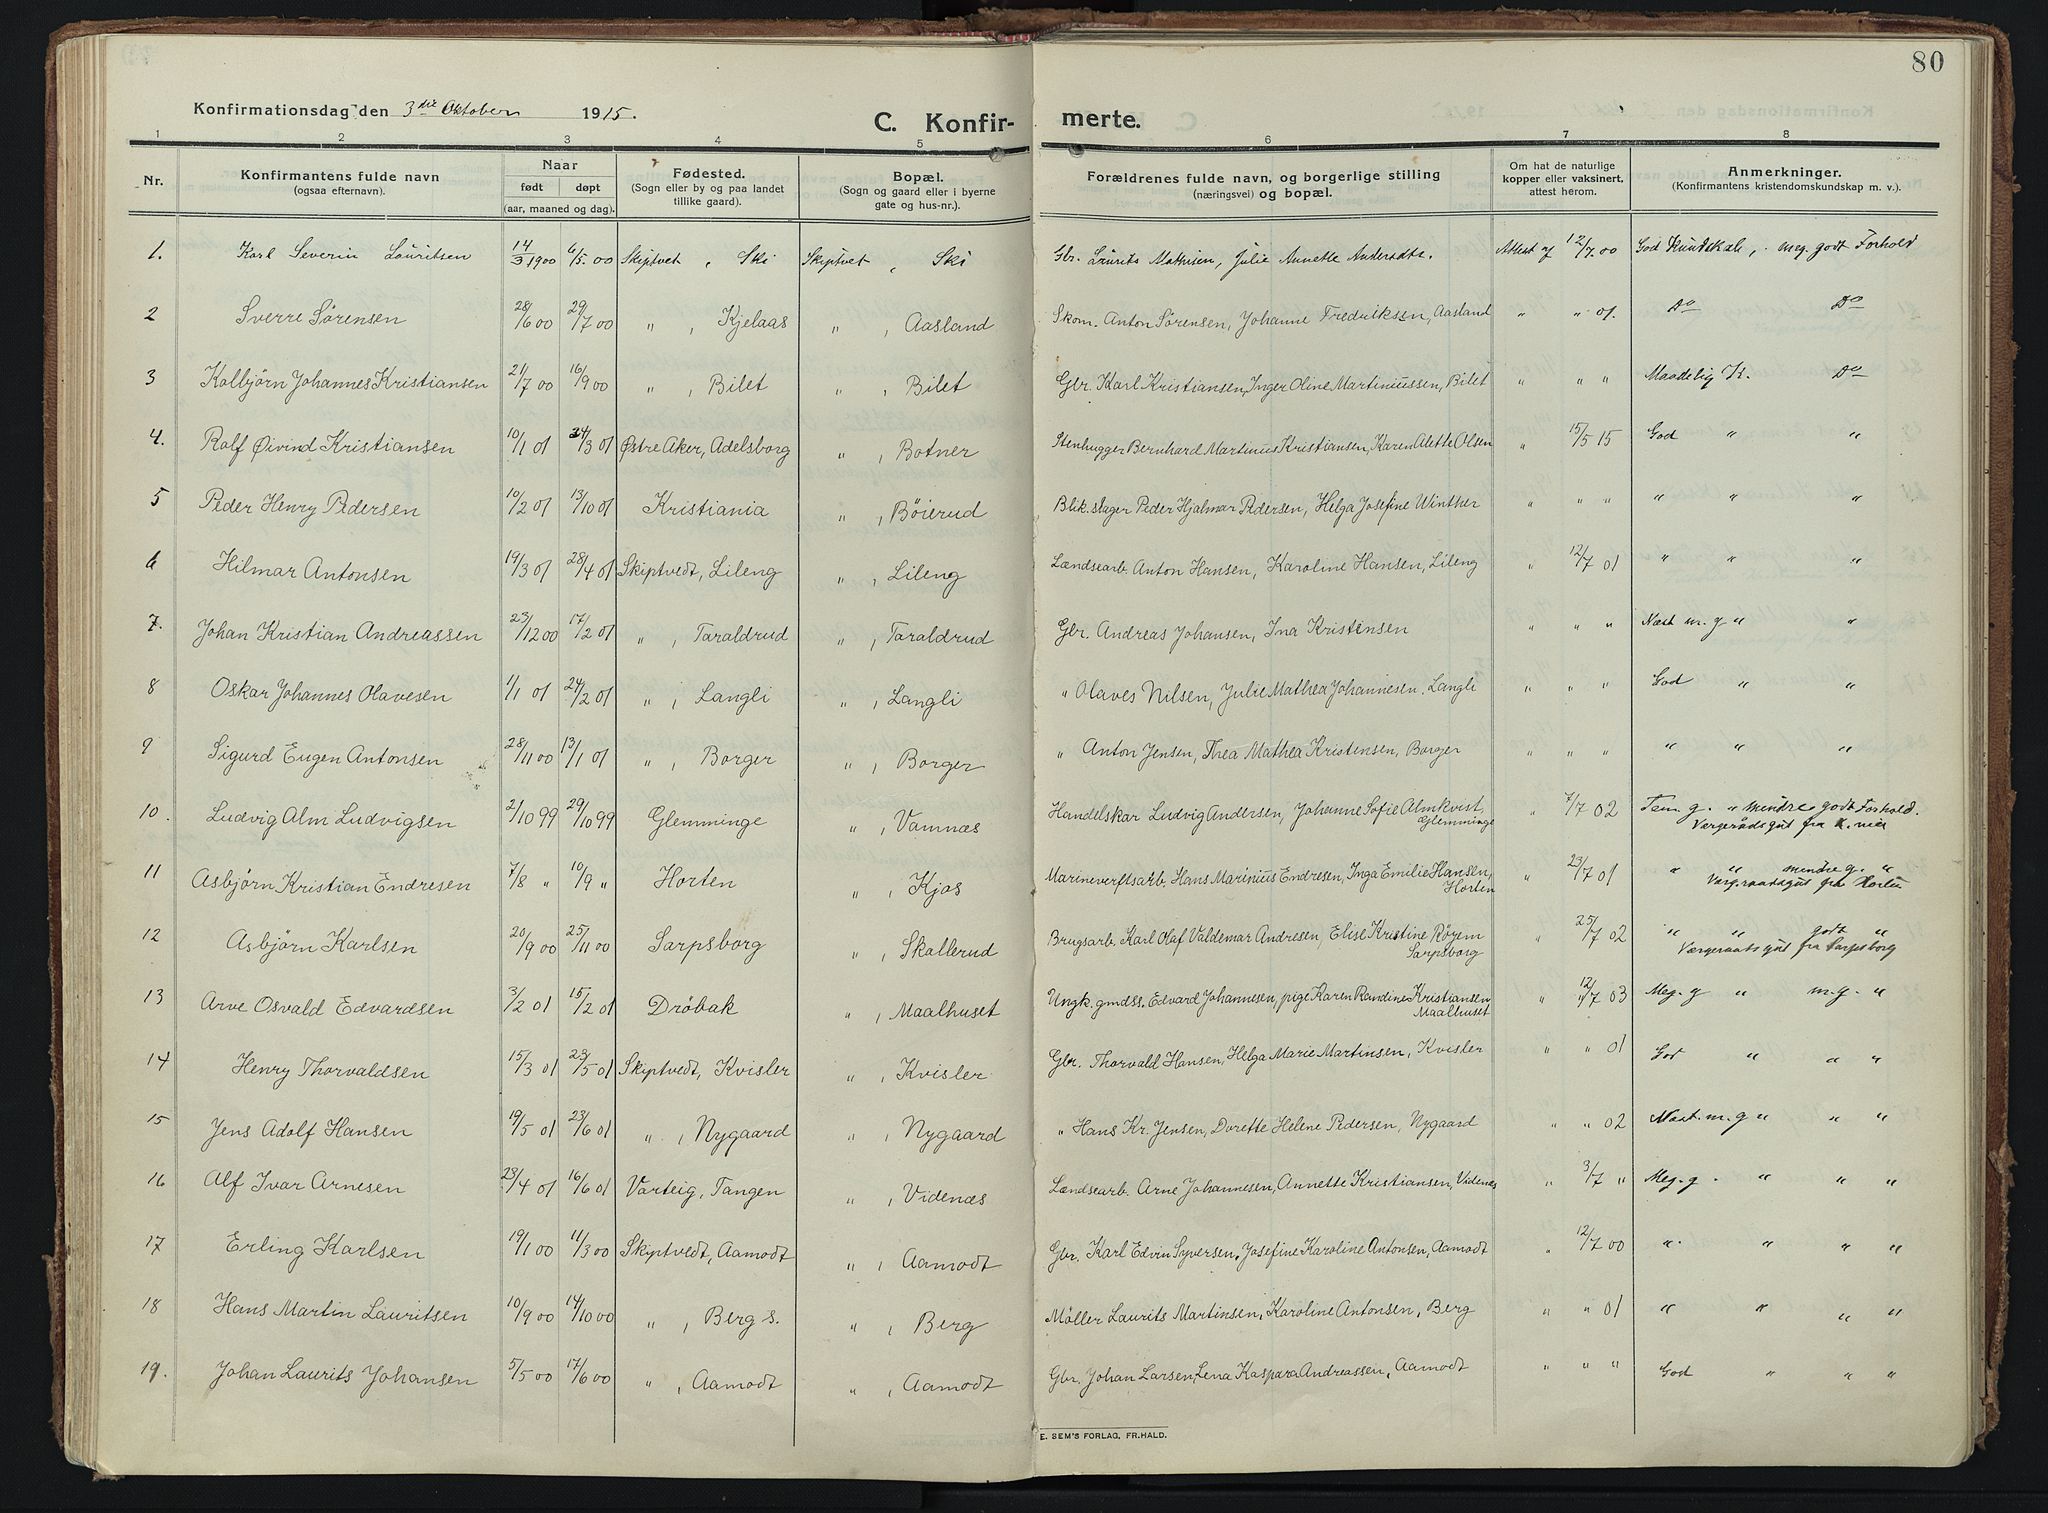 80
Konfirmationsdag den 3die Oktober 1915.
C. Konfir- merte.
1 2 3 4 5 6 7 8
Nr.
Konfirmantens fulde navn
(ogsaa efternavn).
Naar
født døpt
(aar, maaned og dag).
Fødested.
(Sogn eller by og paa landet
tillike gaard).
Bopæl.
(Sogn og gaard eller i byerne
gate og hus-nr.).
Forældrenes fulde navn, og borgerlige stilling
(næringsvei) og bopæl.
Om hat de naturlige
kopper eller vaksinert,
attest herom.
Anmerkninger.
(Konfirmantens kristendomskundskap m. v.).
1. Karl Severin Lauritsen 14/3 1900 6/5 00 Skiptvet, Ski Skiptvet, Ski Gbr. Laurits Mathisen, Julie Annette Andersdtr. Attest af 12/7 00 God Kundskab, meg. godt Forhold
2 Sverre Sørensen 28/6 00 29/7 00 " , Kjelaas " , Aasland Skom. Anton Sørensen, Johanne Fredriksen, Aasland " " 01. Do Do
3 Kolbjørn Johannes Kristiansen 21/7 00 16/9 00 " , Bilet " , Bilet Gbr. Karl Kristiansen, Inger Oline Martiniussen, Bilet " " " Maadelig K. Do
4. Rolf Øivind Kristiansen 10/1 01 24/3 01 Østre Aker, Adelsborg " , Botner Stenhugger Bernhard Martinus Kristiansen, Karen Alette Olsen " 15/5 15 God " "
5 Peder Henry Pedersen 10/2 01 13/10 01 Kristiania " , Bøierud Blik.slager Peder Hjalmar Pedersen, Helga Josefine Winther " " " " " "
6 Hilmar Antonsen 19/3 01 28/4 01 Skiptvedt, Lileng " , Lileng Landsearb. Anton Hansen, Karoline Hansen, Lileng " 12/7 01 " " "
7. Johan Kristian Andreassen 23/12 00 17/2 01 " , Taraldrud " , Taraldrud Gbr. Andreas Johansen, Ina Kristensen " " " Næst m. g " "
8 Oskar Johannes Olavesen 1/1 01 24/2 01 " , Langli " , Langli " Olaves Nilsen, Julie Mathea Johannesen, Langli " " " God " "
9 Sigurd Eugen Antonsen 28/11 00 13/1 01 " , Borger " , Borger " Anton Jensen, Thea Mathea Kristensen, Borger " " " " " "
10. Ludvig Alm Ludvigsen 2/10 99 29/10 99 Glemminge " , Vamnæs Handelskar Ludvig Andersen, Johanne Sofie Almkvist, Glemminge " 7/7 02 Tem. g. " mindre godt Forhold.
Værgerådsgut fra K.nia
11 Asbjörn Kristian Endresen 7/8 " 10/9 " Horten " , Kjos Marineverftsarb. Hans Marinius Endresen, Inga Emilie Hansen, Horten " 23/7 01 " " mindre g. "
Værg.raadsgut fra Horten
12 Asbjörn Karlsen 20/9 00 25/11 00 Sarpsborg " , Skallerud Brugsarb. Karl Olaf Valdemar Andresen, Elise Kristine Røyem Sarpsborg " 25/7 02 " " godt "
Værgeraadsgut fra Sarpsborg
13 Arve Osvald Edvardsen 3/2 01 15/2 01 Dröbak " , Maalhuset Ungk. gmdss. Edvard Johannesen, pige Karen Randine Kristiansen, Maalhuset " 12/7 03 Meg. g " m. g. "
14 Henry Thorvaldsen 15/3 01 23/5 01 Skiptvedt, Kvisler " , Kvisler Gbr. Thorvald Hansen, Helga Marie Martinsen, Kvisler " " 01 God " " "
15 Jens Adolf Hansen 19/5 01 23/6 01 " , Nygaard " , Nygaard " Hans Kr. Jensen, Dorette Helene Pedersen, Nygaard " " 02 Næst. m. g " " "
16 Alf Ivar Arnesen 23/4 01 16/6 01 Varteig, Tangen " , Videnæs Landsearb. Arne Johannesen, Annette Kristiansen, Videnæs " 3/7 " Meg. g. " " "
17 Erling Karlsen 19/1 00 11/3 00 Skiptvedt, Aamodt " , Aamodt Gbr. Karl Edvin Syversen, Josefine Karoline Antonsen, Aamodt " 12/7 00 " " " "
18 Hans Martin Lauritsen 10/9 00 14/10 00 " , Berg s. " , Berg Möller Laurits Martinsen, Karoline Antonsen, Berg " " 01 " " " "
19. Johan Laurits Johansen 5/5 00 17/6 00 " , Aamodt " , Aamodt Gbr. Johan Larsen, Lena Kaspara Andreassen, Aamodt " " " God " " "
E. SEM'S FORLAG, FR.HALD.